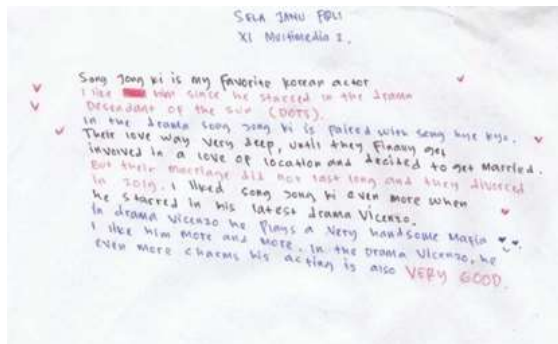 SELA JANU FOLI
XI Multimedia 2.
Song Jong ki is my favorite korean actor
I like him since he starred in the drama
Descendant of the sun (DOTS).
In the drama song song ki is paired with song hye kyo.
Their love way very deep, until they finany get
involved in a love of location and decided to get married.
But their marriage did not last long and they divorced
in 2019. I liked song song ki even more when
he starred in his latest drama Vicenzo.
In drama vicenzo he plays a very handsome Mafia
I like him more and more. In the Drama Vicenzo, he
even more charms his acting is also VERY GOOD.